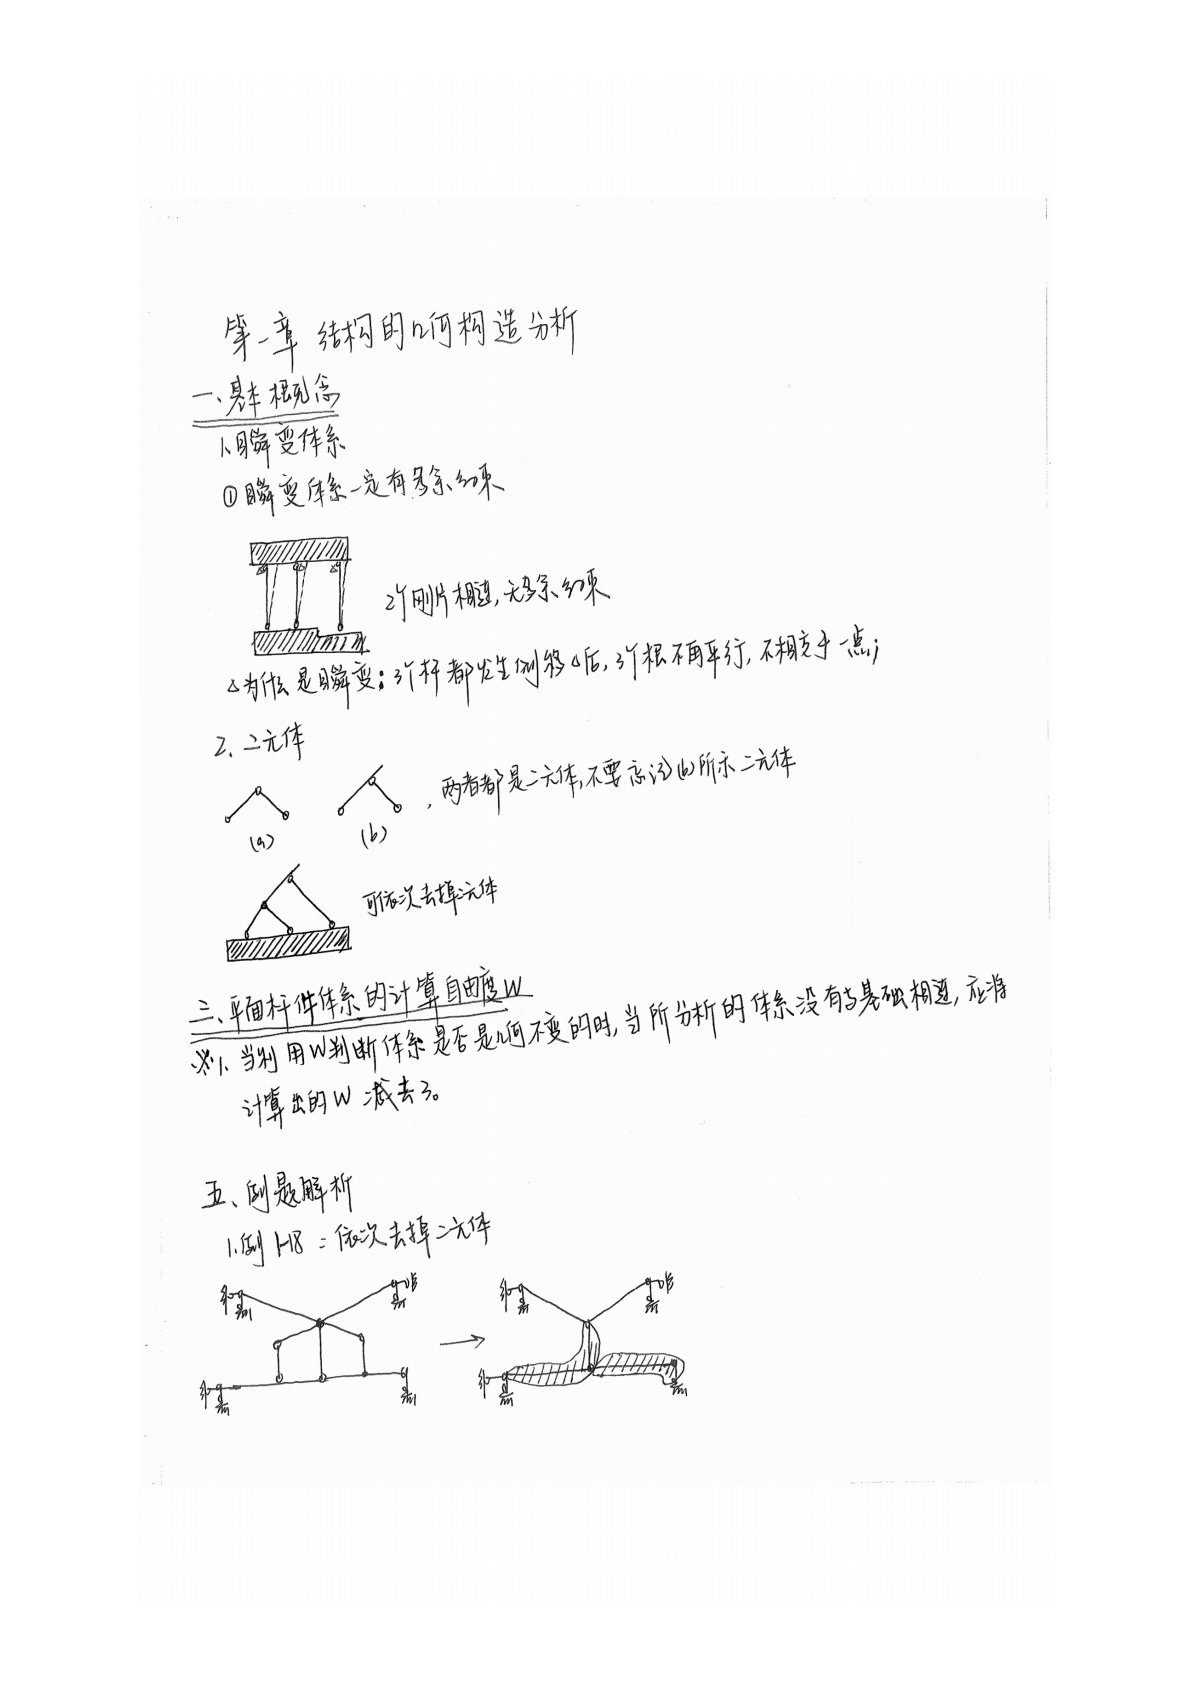 第一章 结构的几何构造分析
一、基本概念
1、瞬变体系
①瞬变体系一定有多余约束
2个刚片相连,无多余约束
△为什么是瞬变:3个杆都发生侧移△后,3个根不再平行,不相交于一点;
2、二元体
,两者都是二元体,不要忘记(b)所示二元体
(a) (b)
可依次去掉二元体
三、平面杆件体系的计算自由度W
※1、当利用W判断体系是否是几何不变的时,当所分析的体系没有与基础相连,应将
计算出的W减去3。
五、例题解析
1.例1-18:依次去掉二元体